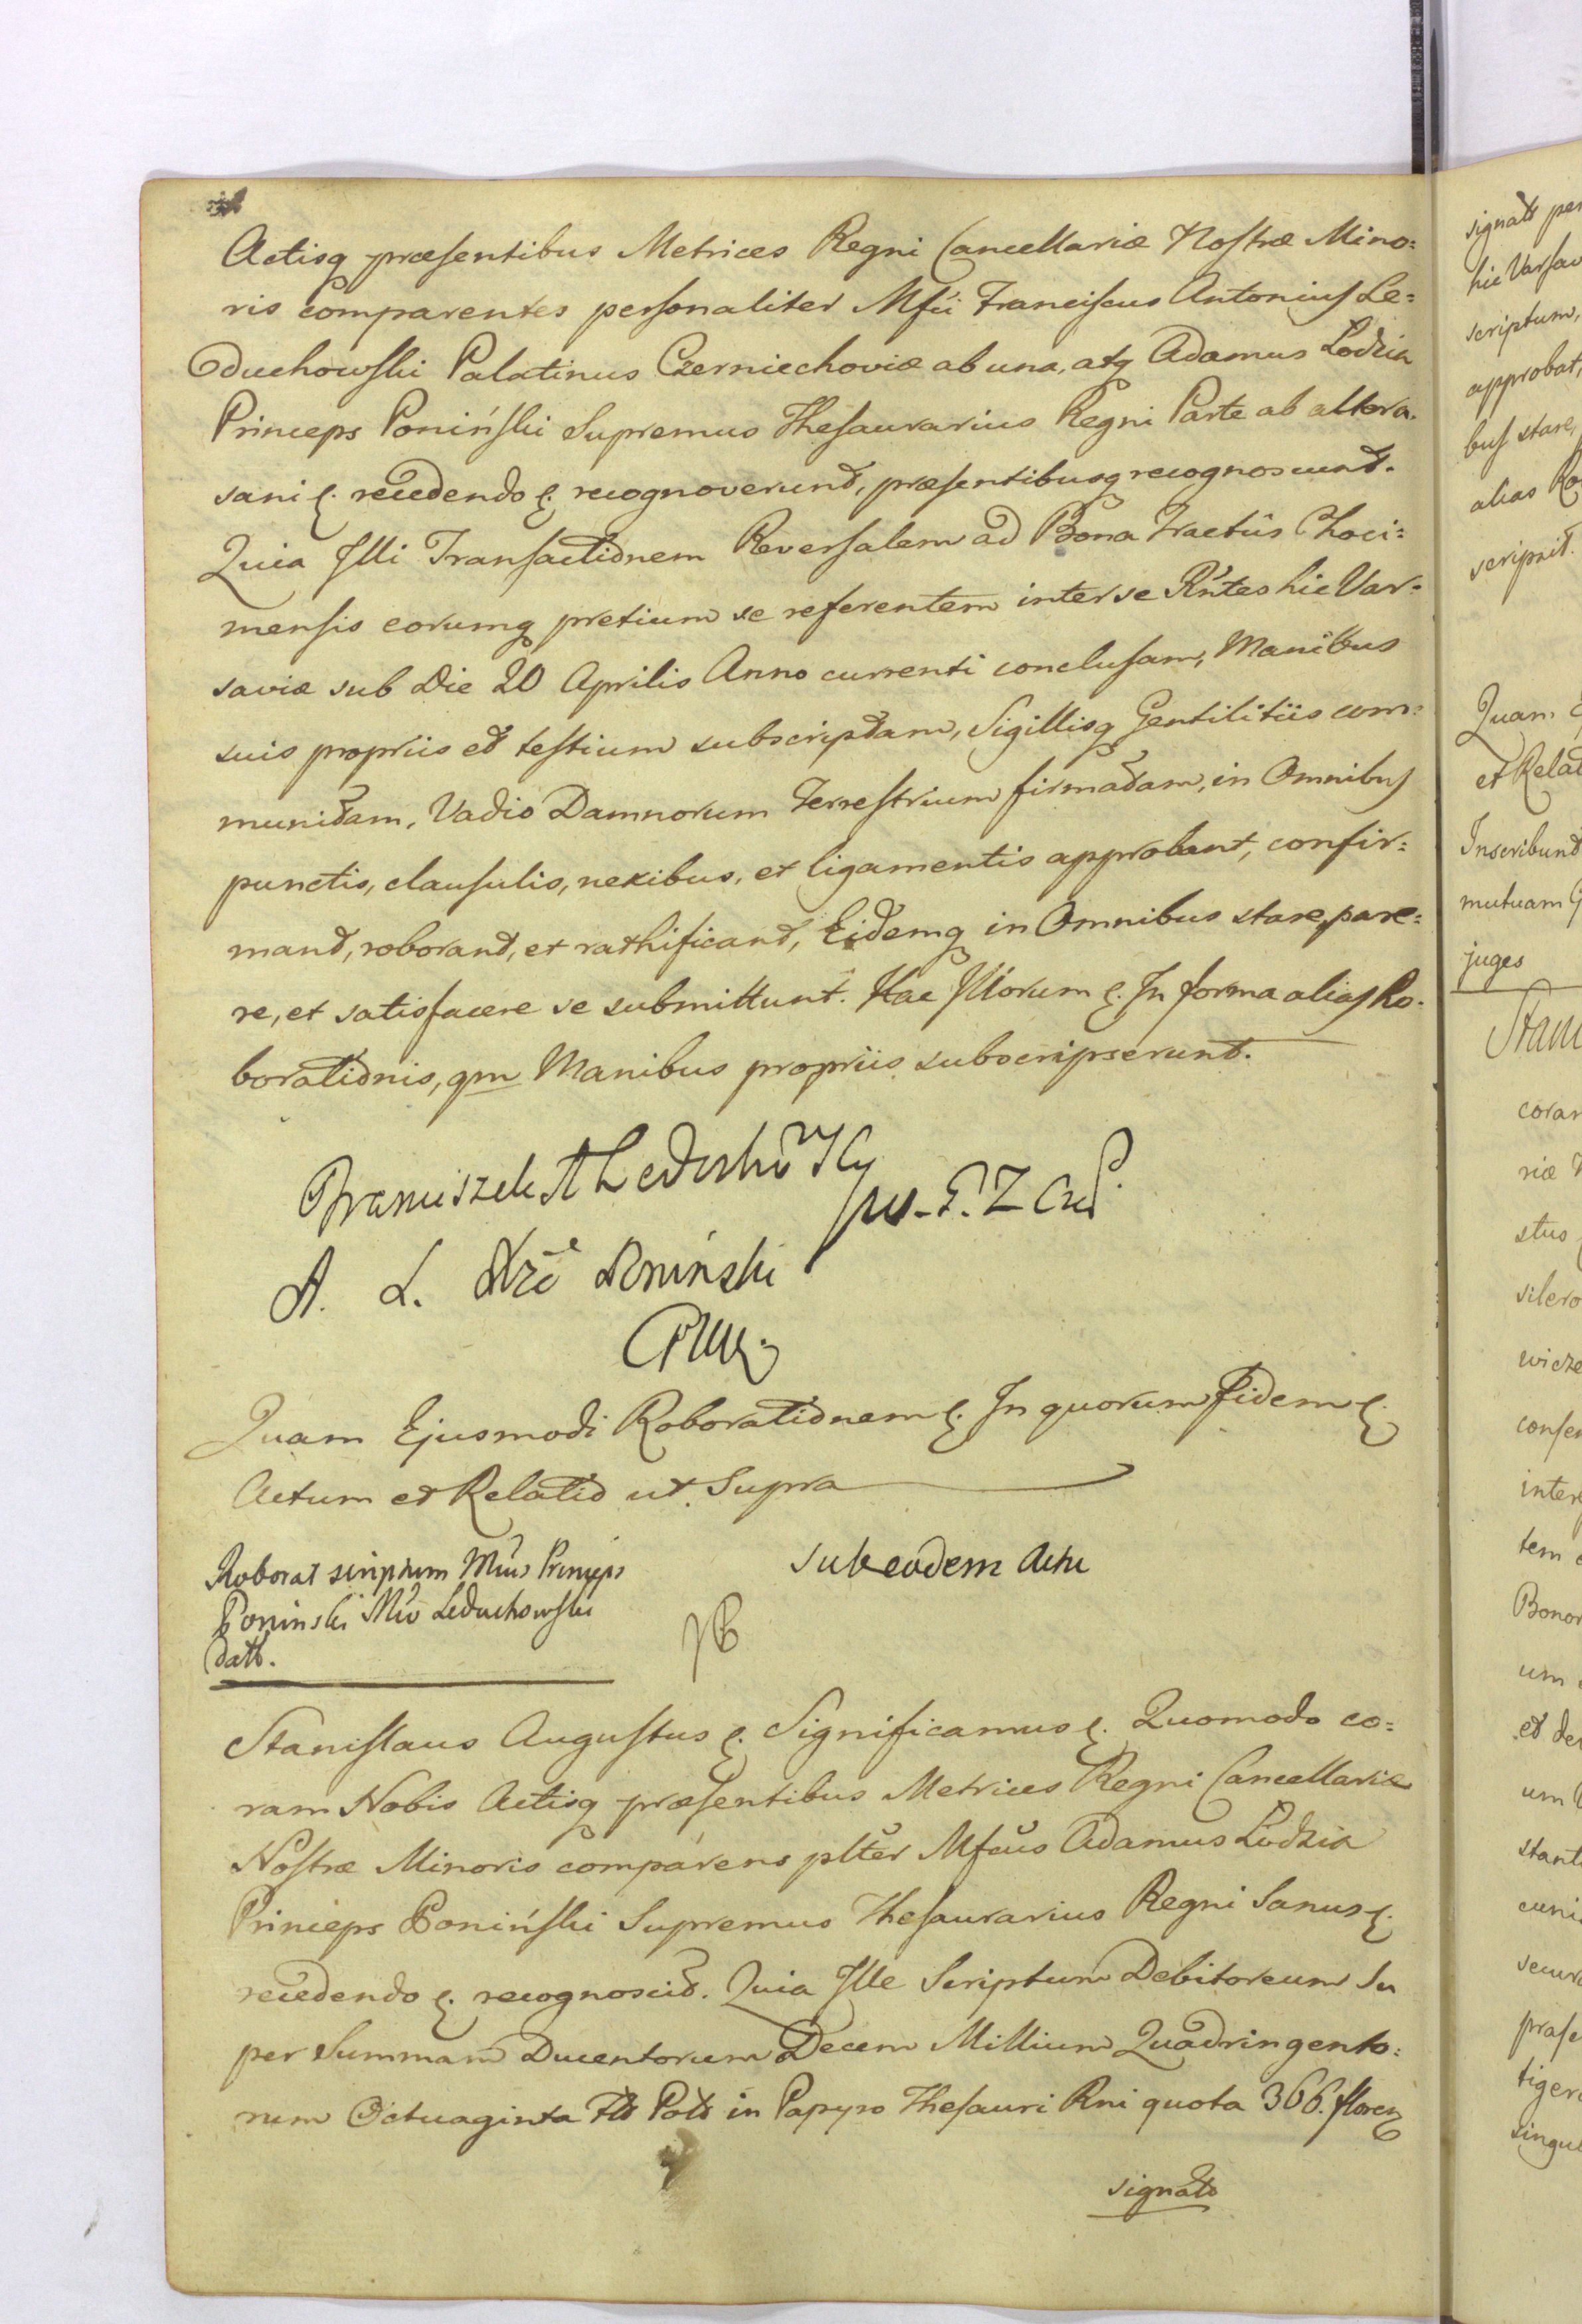 Actisq præsentibus Metrices Regni Cancellariæ Nostræ Mino:
ris comparentes personaliter Mfci Franciscus Antonius Le=
duchowski Palatinus Czerniechoviæ ab una, atq Adamus Lodzia
Princeps Poniński Supremus Thesaurarius Regni Parte ab altera.
sani &. recedendo &. recognoverunt, præsentibusq recognoscunt.
Quia Illi Transactionem Reversalem ad Bona Tractûs Choci:
mensis eorumq pretium se referentem inter se Rntes hic Var=
saviæ sub die 20 Aprilis Anno currenti conclusam, Manibus
suis propriis et testium subscriptam, Sigillisq Gentilitiis com=
munitam, Vadio Damnorum Terrestrium firmatam, in Omnibus
punctis, clausulis, nexibus, et ligamentis approbant, confir=
mant, roborant, et rathificant, Eidemq in Omnibus stare, pare=
re, et satisfacere se submittunt. Hac Illorum &. In forma alias Ro.
borationis, qm Manibus propriis subscripserunt.
Franciszek A Leduchowsky
A. L. Xże Poniński
Quam Ejusmodi Roborationem &. In quorum Fidem &.
Actum et Relatio ut Supra
Roborat scriptum Mcus Princeps
Poninski Mco Leduchowski
datt.
Sub eodem Actu
Stanislaus Augustus &. Significamus &. Quomodo co=
ram Nobis Actisq præsentibus Metrices Regni Cancellariæ
Nostræ Minoris comparens plter Mfcus Adamus Lodzia
Princeps Poniński Supremus Thesaurarius Regni Sanus &.
recedendo &. recognoscit. Quia Ille Scriptum Debitoreum Su
per Summam Ducentorum Decem Millium Quadringento:
rum Octuaginta Flt Polt in Papyro Thesauri Rni quota 366. floren
signato
signatt per
hic Varsav
scriptum,
approbat,
bus stare,
alias Ro
scripsit.
Quam
et Relat
Inscribunt
mutuam
juges
Stani
coram
riæ
stus
wicze
conse
inter
tem
Bonor
um
et de
um
stant
secur
præse
singu